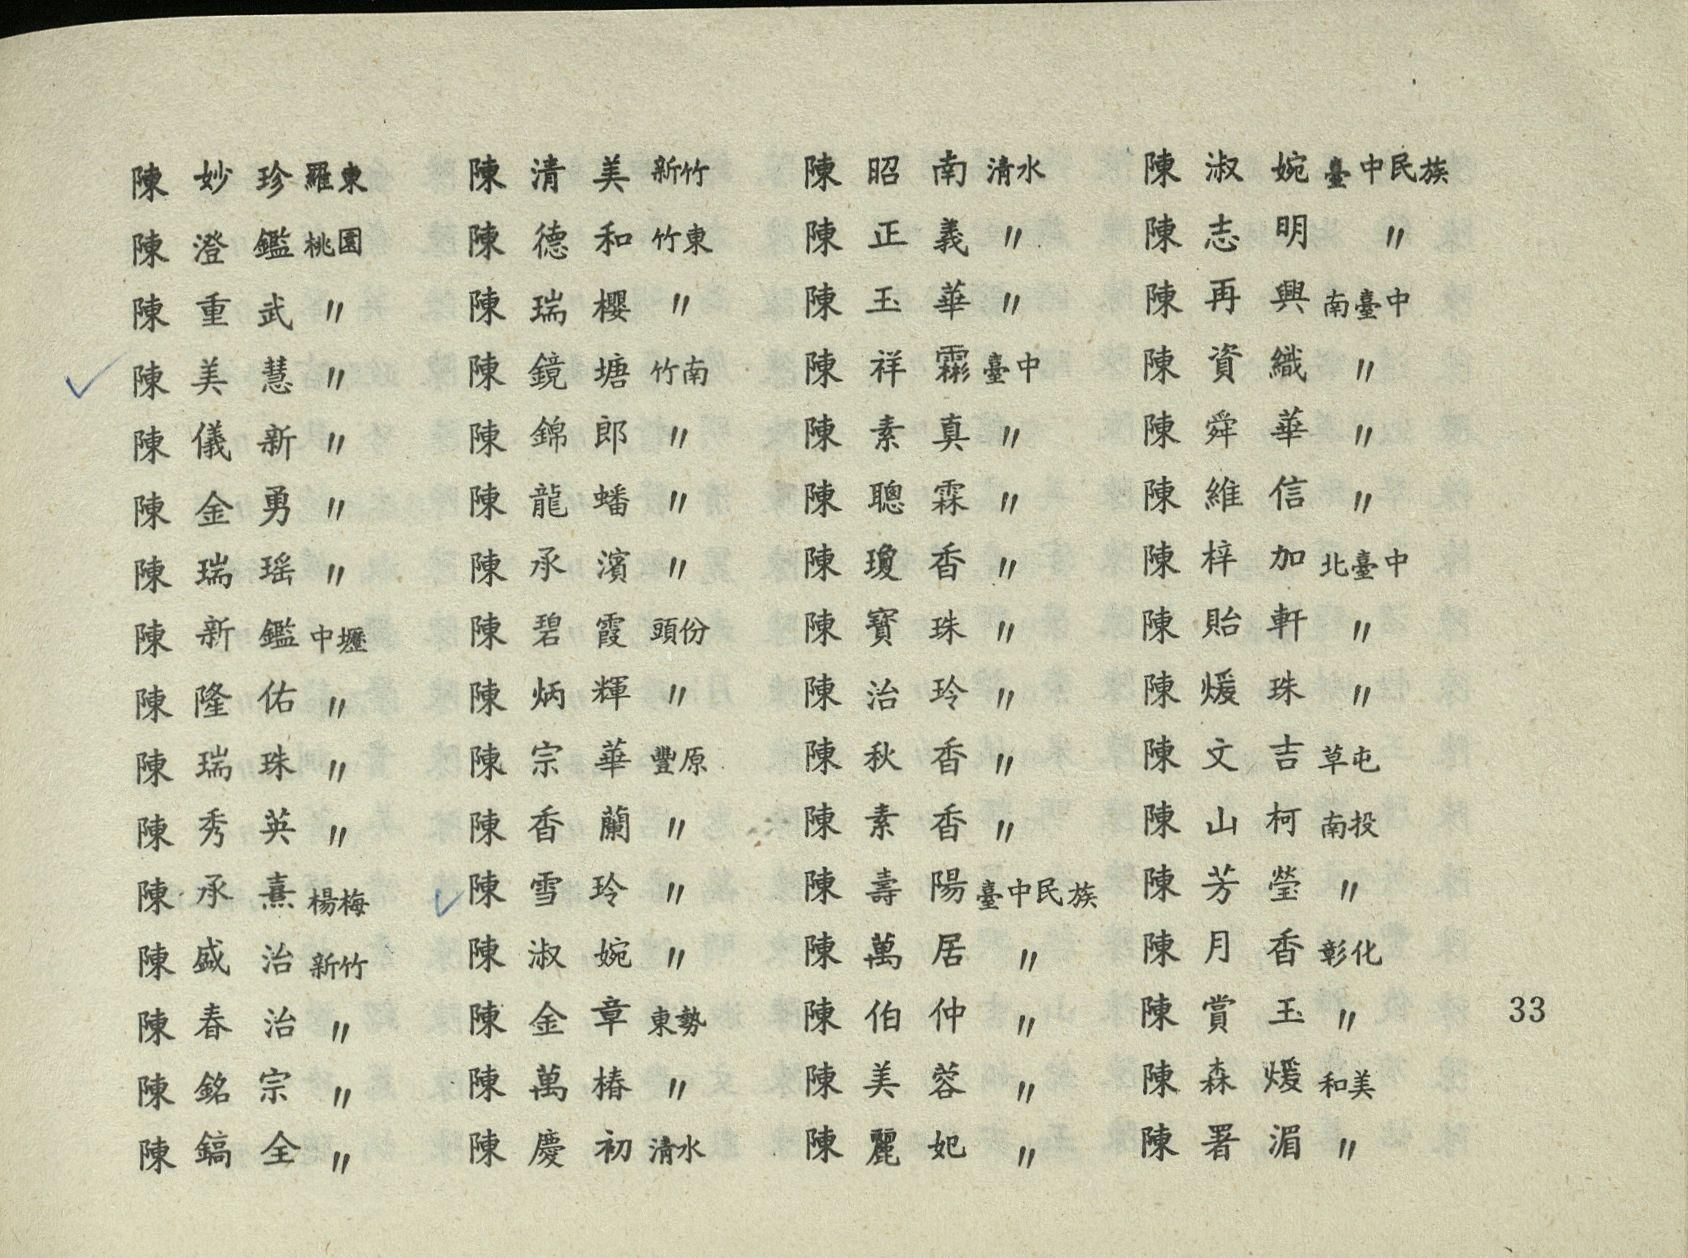 陳妙珍 羅東
陳澄鑑 桃園
陳重武 〃
陳美慧 〃
陳儀新 〃
陳金勇 〃
陳瑞瑶 〃
陳新鑑 中壢
陳隆佑 〃
陳瑞珠 〃
陳秀英 〃
陳承熹 楊梅
陳盛治 新竹
陳春治 〃
陳銘宗 〃
陳鎬全 〃
陳清美 新竹
陳德和 竹東
陳瑞櫻 〃
陳鏡塘 竹南
陳錦郎 〃
陳龍蟠 〃
陳承濱 〃
陳碧霞 頭份
陳炳輝 〃
陳宗華 豐原
陳香蘭 〃
陳雪玲 〃
陳淑婉 〃
陳金章 東勢
陳萬椿 〃
陳慶初 清水
陳昭南 清水
陳正義 〃
陳玉華 〃
陳祥霦 臺中
陳素真 〃
陳聰霖 〃
陳瓊香 〃
陳寶珠 〃
陳治玲 〃
陳秋香 〃
陳素香 〃
陳壽陽 臺中民族
陳萬居 〃
陳伯仲 〃
陳美蓉 〃
陳麗妃 〃
陳淑婉 臺中民族
陳志明 〃
陳再興 南臺中
陳資織 〃
陳舜華 〃
陳維信 〃
陳梓加 北臺中
陳貽軒 〃
陳煖珠 〃
陳文吉 草屯
陳山柯 南投
陳芳瑩 〃
陳月香 彰化
陳賞玉 〃
陳森煖 和美
陳署湄 〃
33